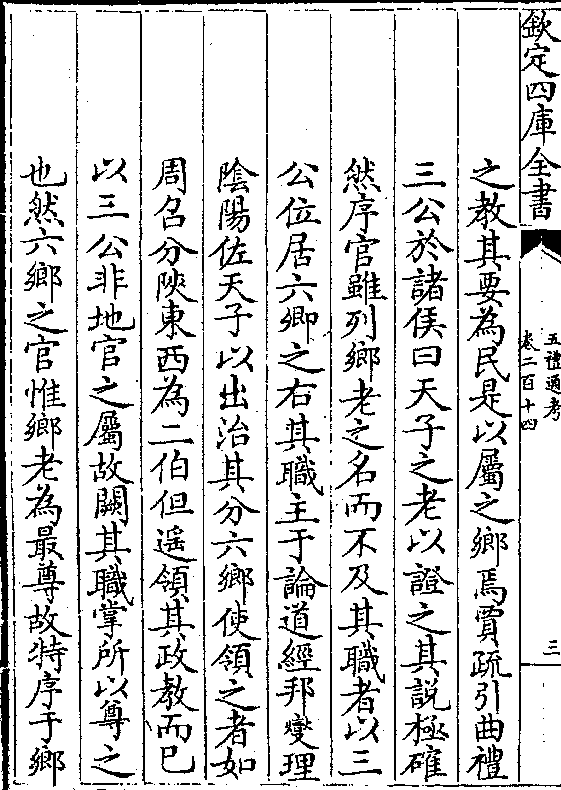 欽定四庫全書
五禮通考
卷二百十四
三
之教其要為民是以屬之鄉焉賈疏引曲禮
三公於諸侯曰天子之老以證之其説極確
然序官雖列鄉老之名而不及其職者以三
公位居六卿之右其職主于論道經邦燮理
隂陽佐天子以出治其分六鄉使領之者如
周召分陜東西為二伯但遥領其政教而已
以三公非地官之屬故闕其職掌所以尊之
也然六鄉之官惟鄉老為最尊故特序于鄉